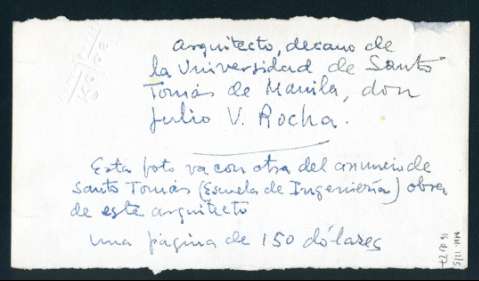 Arquitecto, decano de
la Universidad de Santo
Tomás de Manila, don
Julio V. Rocha.
Esta foto va con otra del anuncio de
Santo Tomás (Escuela de Ingeniería) obra
de este arquitecto
una página de 150 dólares